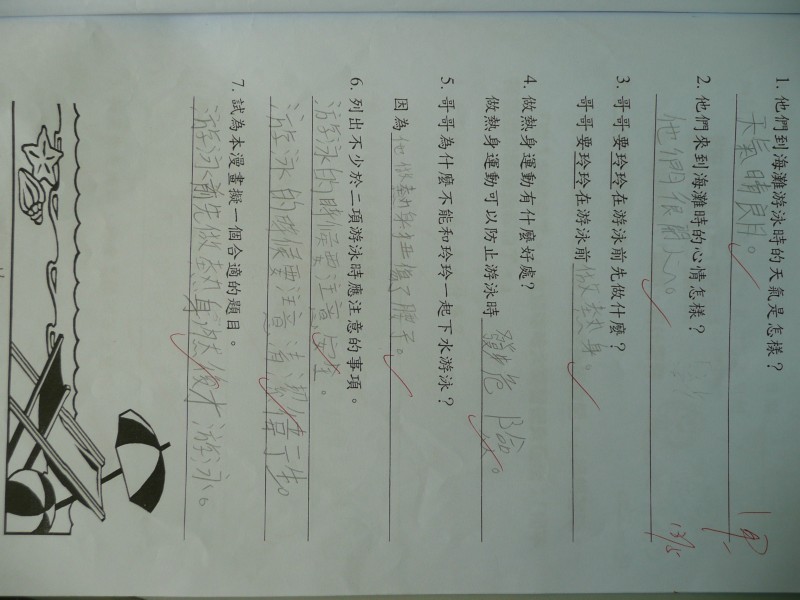 1. 他們到海灘游泳時的天氣是怎樣？
天氣晴朗。
2. 他們來到海灘時的心情怎樣？
他們很開心。
3. 哥哥要玲玲在游泳前先做什麼？
哥哥要玲玲在游泳前做熱身。
4. 做熱身運動有什麼好處？
做熱身運動可以防止游泳時發生危險。
5. 哥哥為什麼不能和玲玲一起下水游泳？
因為他做熱身扭傷了脖子。
6. 列出不少於二項游泳時應注意的事項。
游泳的時候要注意安全。
游泳的時候要注意清潔衛生。
7. 試為本漫畫擬一個合適的題目。
游泳前先做熱身然後才游泳。
13/5